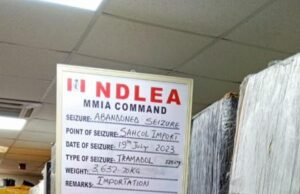 NDLEA
MMIA COMMAND
SEIZURE: ABANDONED SEIZURE
POINT OF SEIZURE: SAHCOL IMPORT
DATE OF SEIZURE: 19th July 2023
TYPE OF SEIZURE: TRAMADOL
WEIGHT:
REMARKS: IMPORTATION